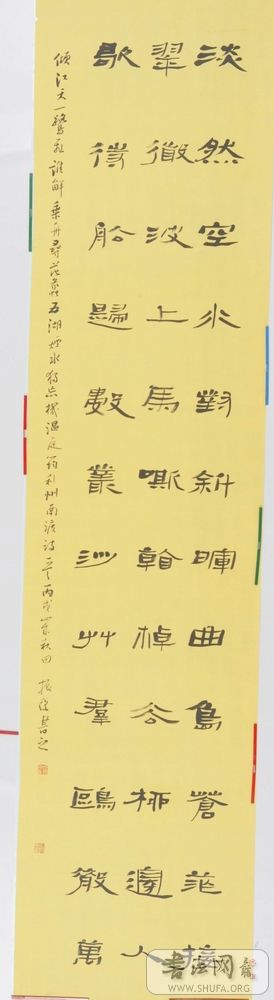 淡然空水對斜暉曲島蒼茫接
翠微波上馬嘶看棹去柳邊人
歇待船歸數叢沙艸羣鷗散萬
傾江天一鷺飛誰解乘舟尋范蠡五湖煙水獨忘機溫庭筠利州南渡詩一首丙戌秋田振書之
書法网
WWW.SHUFA.ORG